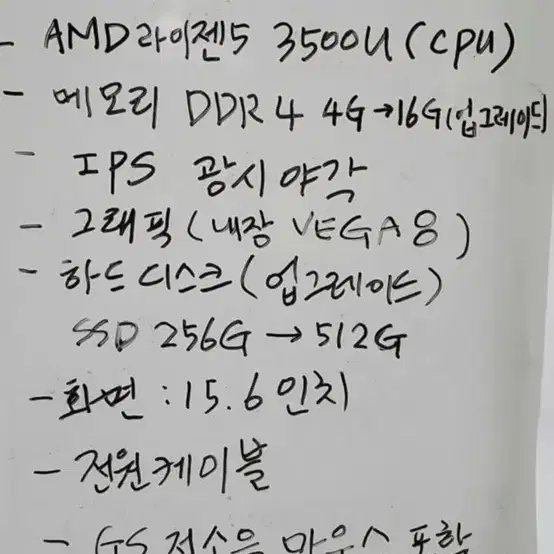 - AMD 라이젠5 3500U (CPU)
- 메모리 DDR4 4G→16G(업그레이드)
- IPS 광시야각
- 그래픽 (내장 VEGA 8)
- 하드디스크 (업그레이드)
SSD 256G → 512G
- 화면 : 15.6 인치
- 전원케이블
- GS 저소음 마우스 포함